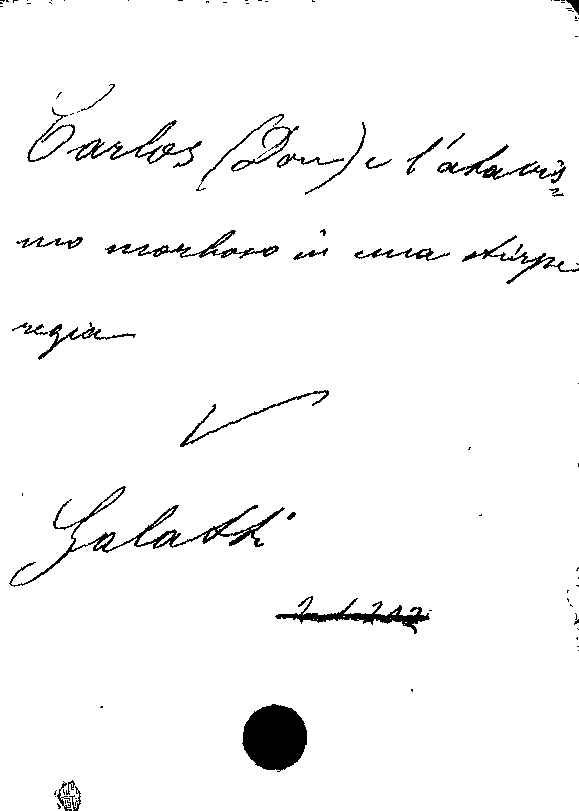 Carlos (Don) e l'atavis=
mo morboso in una stirpe
regia
V
Galatti